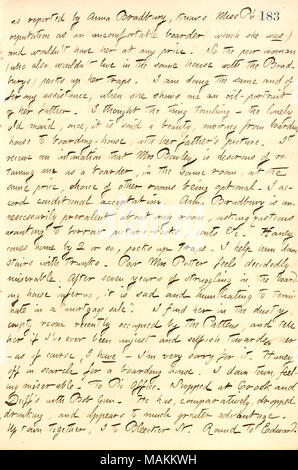 183
as reported by Anna Bradbury, knows Miss P's
reputation as an uncomfortable boarder which she was)
and wouldn't have her at any price. So the poor woman
(who also wouldn't live in the same house with the Brad-
burys) packs up her traps. I am doing the same and of-
fer my assistance, when she shows me an oil-portrait
of her father. I thought the thing touching — the lonely
old maid, once, it is said a beauty, moving from boarding
house to boarding-house, with her father's picture. I
receive an intimation that Mrs Boley is desirous of re-
taining me as a boarder, in the same room, at the
same price, choice of other rooms being optional. I ac-
cord conditional acceptation. Anna Bradbury is un-
necessarily prevalent about my room, asking questions
wanting to borrow picture-books, cuts &c. Haney
comes home by 2 or so, packs up traps. I help him down
stairs with trunks. Poor Mrs Potter feels decidedly
miserable. After seven years of struggling in the board-
ing house inferno, it is sad and humiliating to termi-
nate in a mortgage sale. I find her in the dusty
empty room recently occupied by the Pattens, and tell
her if I've ever been unjust and selfish towards her
— as of course, I have — I'm very sorry for it. Haney
off in search for a boarding house. I down town, feel-
ing miserable. To Pic Office. Stopped at Crook and
Duff's with Bob Gun. He has, comparatively, dropped
drinking, and appears to much greater advantage.
Up town together, I to Bleecker St. Round to Edwards'
alamy
MAKKWH
www.alamy.com